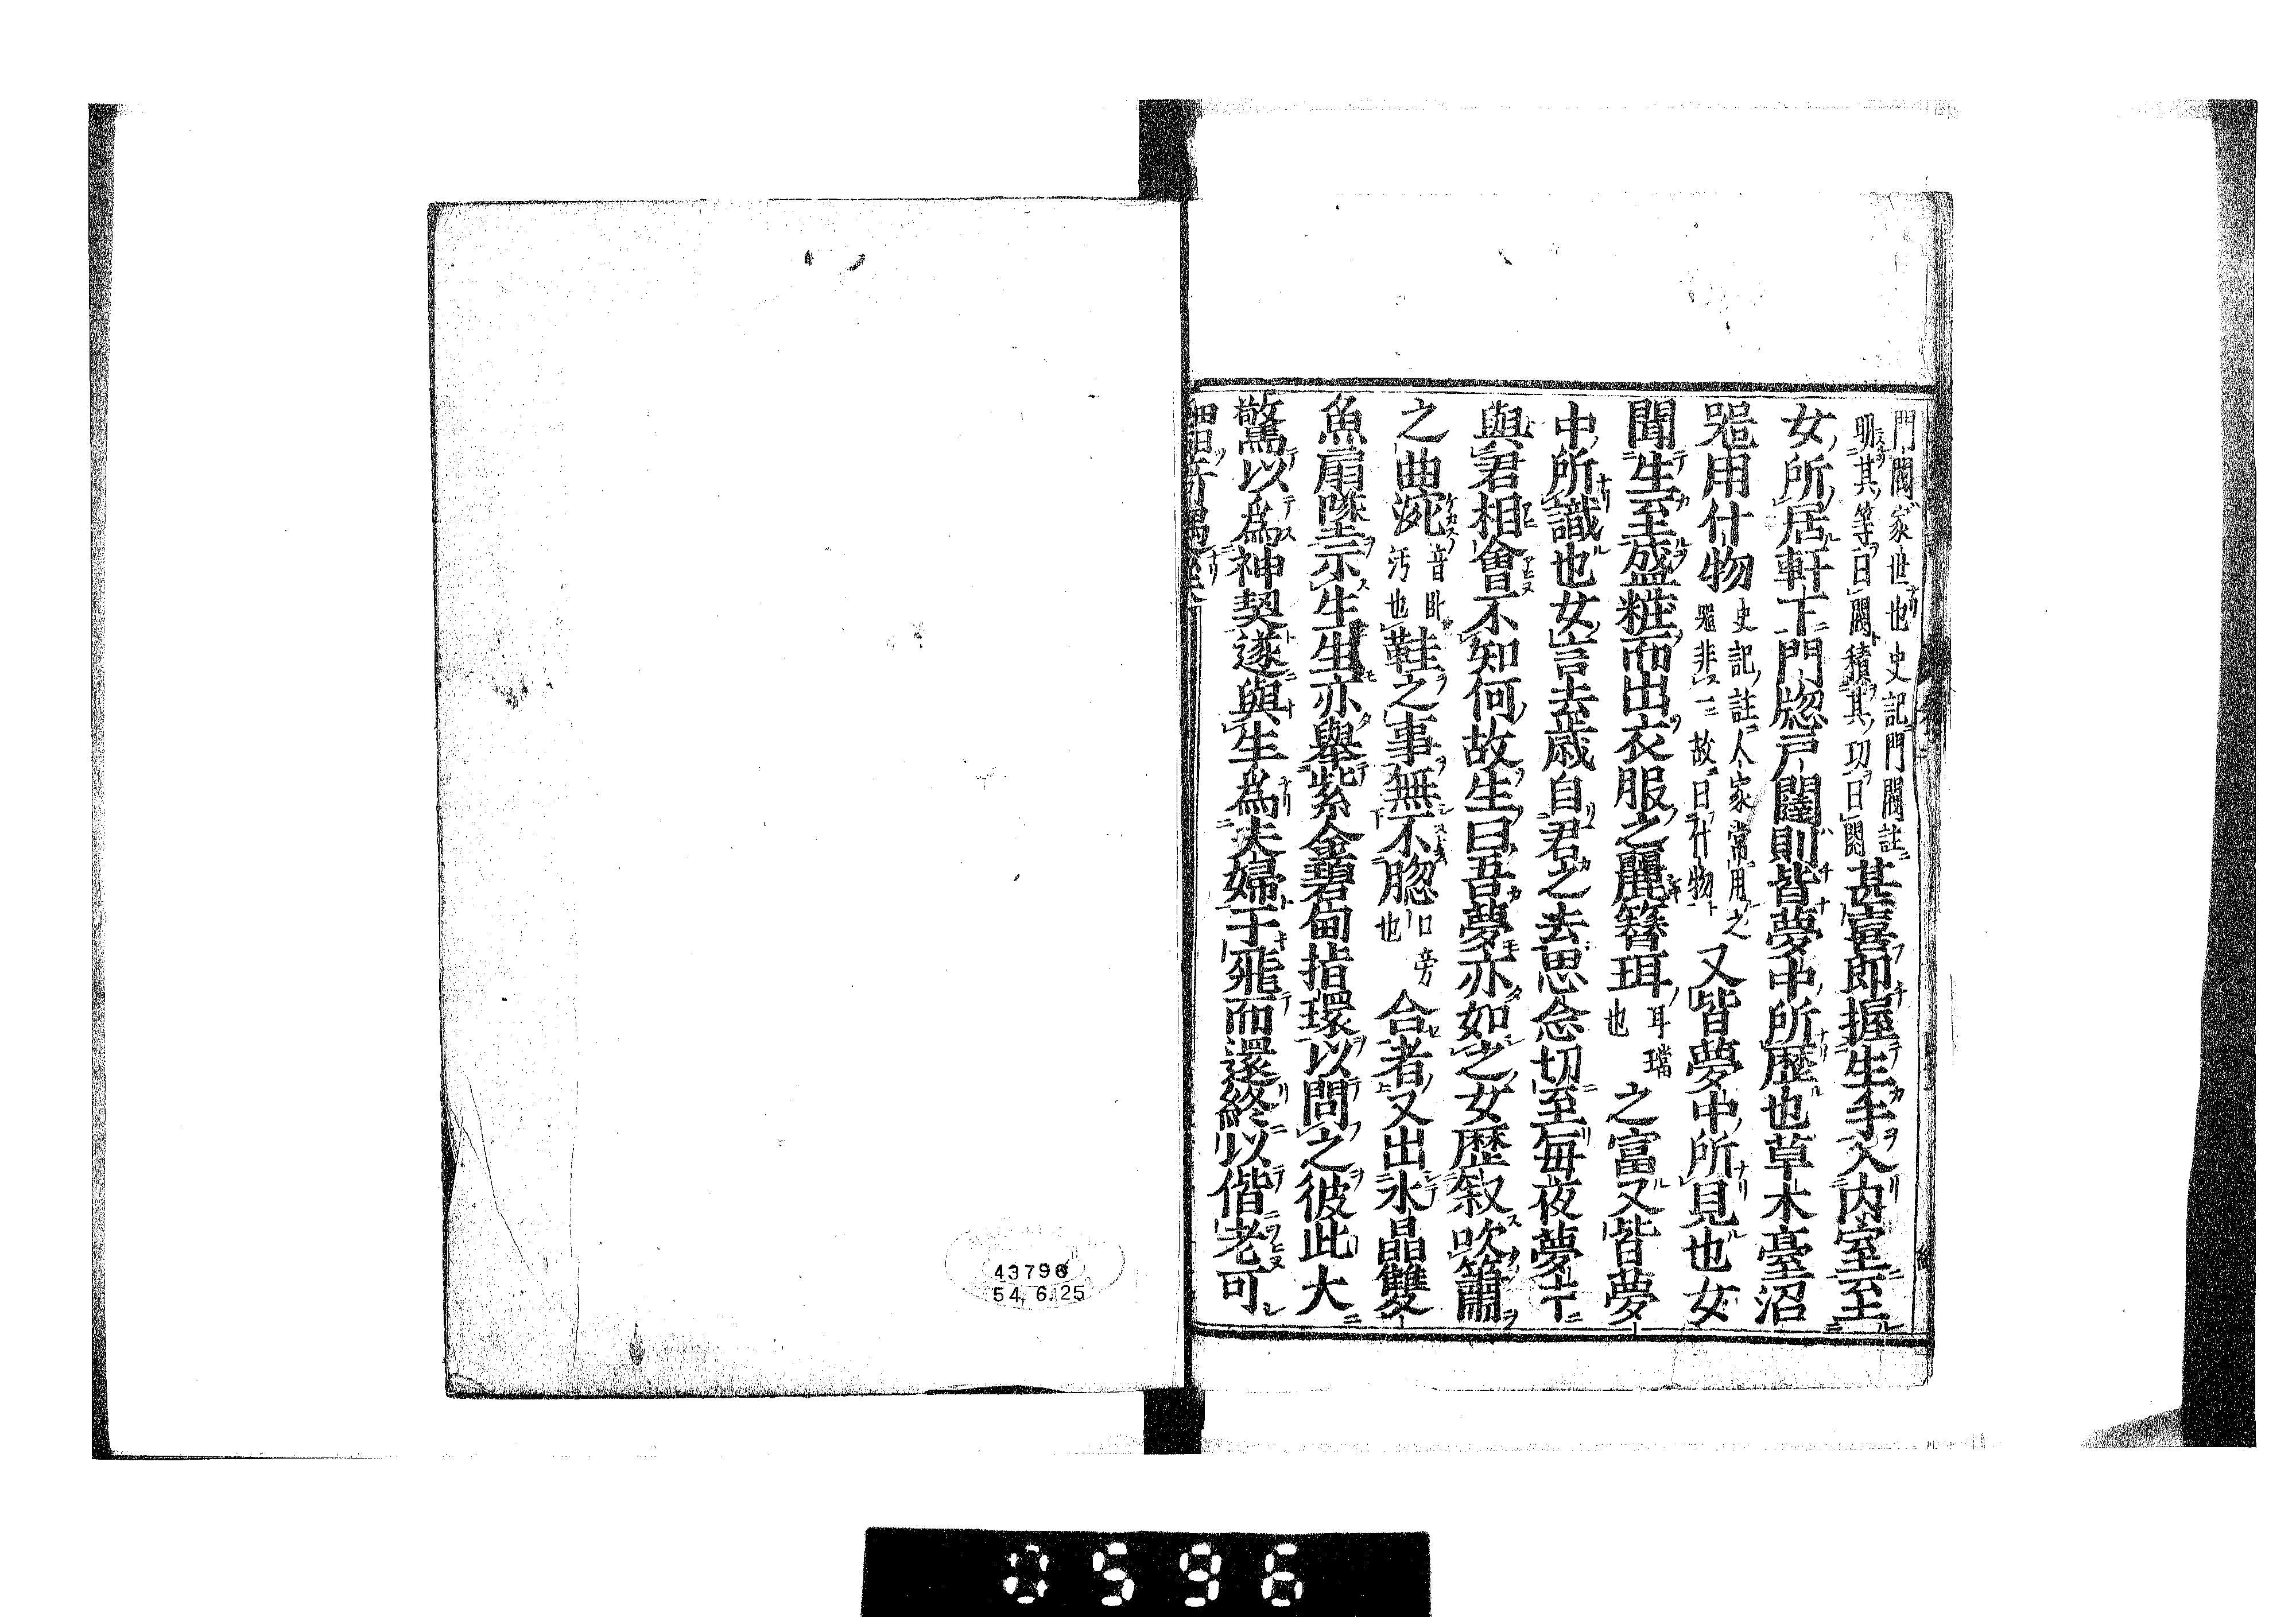 門閥家世也史記門閥註
明其等曰閥積其功曰閲甚喜即握生手入内室至
女所居軒下門牕戸闥則皆夢中所歴也草木臺沼
噐用什物史記註人家常用之
噐非一故曰什物又皆夢中所見也女
聞生至盛粧而出衣服之麗簪珥耳璫
也之富又皆夢
中所識也女言去歳自君之去思念切至毎夜夢中
與君相會不知何故生曰吾夢亦如之女歴叙吹簫
之曲涴音卧
汚也鞋之事無不脗口旁
也合者又出水晶雙
魚扇墜示生生亦舉紫金碧甸指環以問之彼此大
驚以爲神契遂與生爲夫婦于飛而還終以偕老可
謂奇遇矣
43796
54. 6. 25
0596